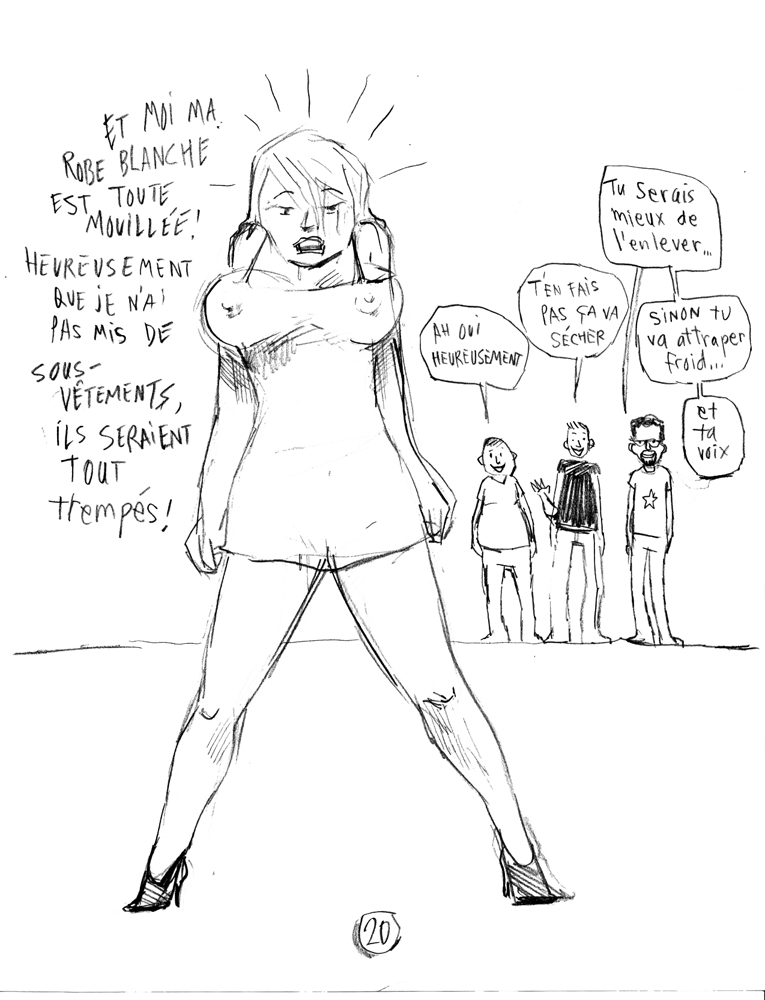 ET MOI MA
ROBE BLANCHE
EST TOUTE
MOUILLÉE!
HEUREUSEMENT
QUE JE N'AI
PAS MIS DE
SOUS-
VÊTEMENTS,
ILS SERAIENT
TOUT
trempés!
AH OUI
HEUREUSEMENT
T'EN FAIS
PAS ÇA VA
SÉCHER
Tu serais
mieux de
l'enlever...
SINON TU
va attraper
froid...
et
ta
voix
20